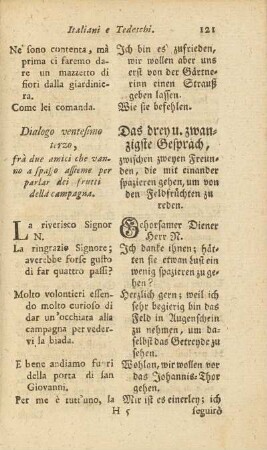 Italiani e Tedeschi. 121
Ne' sono contenta, mà
prima ci faremo da-
re un mazzetto di
fiori dalla giardinie-
ra.
Come lei comanda.
Dialogo ventesimo
terzo,
frà due amici che van-
no a spasso assieme per
parlar dei frutti
della campagna.
La riverisco Signor
N.
La ringrazio Signore;
averebbe forse gusto
di far quattro passi?
Molto volontieri essen-
do molto curioso di
dar un'occhiata alla
campagna per veder-
vi la biada.
E bene andiamo fuori
della porta di san
Giovanni.
Per me è tutt'uno, la
Ich bin es zufrieden,
wir wollen aber uns
erst von der Gärtne-
rinn einen Strauß
geben lassen.
Wie sie befehlen.
Das drey u. zwan-
zigste Gespräch,
zwischen zweyen Freun-
den, die mit einander
spazieren gehen, um von
den Feldfrüchten zu
reden.
Gehorsamer Diener
Herr N.
Ich danke ihnen; hät-
ten sie etwan Lust ein
wenig spazieren zu ge-
hen?
Herzlich gern; weil ich
sehr begierig bin das
Feld in Augenschein
zu nehmen, um da-
selbst das Getreyde zu
sehen.
Wohlan, wir wollen vor
das Johannis-Thor
gehen.
Mir ist es einerley; ich
H 5 seguirò